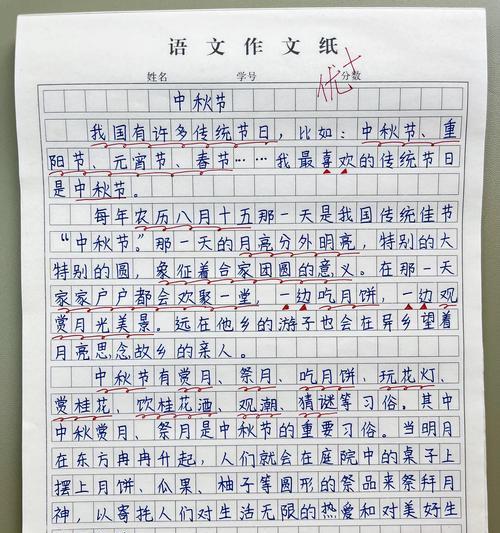 语文作文纸
姓名 学号 分数
优+
中秋节
我国有许多传统节日，比如：中秋节、重
阳节、元宵节、春节……我最喜欢的传统节日
是中秋节。
每年农历八月十五那一天是我国传统佳节
“中秋节。”那一天的月亮分外明亮，特别的大
特别的圆，象征着合家团圆的意义。在那一天
家家户户都会欢聚一堂，一边吃月饼，一边观
赏月光美景。远在他乡的游子也会在异乡望着
月亮思念故乡的亲人。
中秋节有赏月、祭月、吃月饼、玩花灯、
赏桂花、饮桂花酒、观潮、猜谜等习俗。其中
中秋赏月、祭月是中秋节的重要习俗。当明月
在东方冉冉升起，人们就会在庭院中的桌子上
摆上月饼、瓜果、柚子等圆形的祭品来祭拜月
神，以寄托人们对生活无限的热爱和对美好生